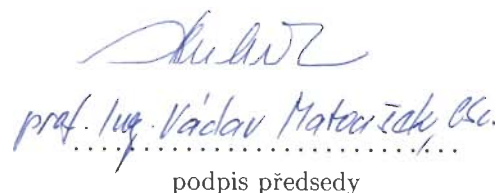 prof. Ing. Václav Matoušek, CSc.
podpis předsedy